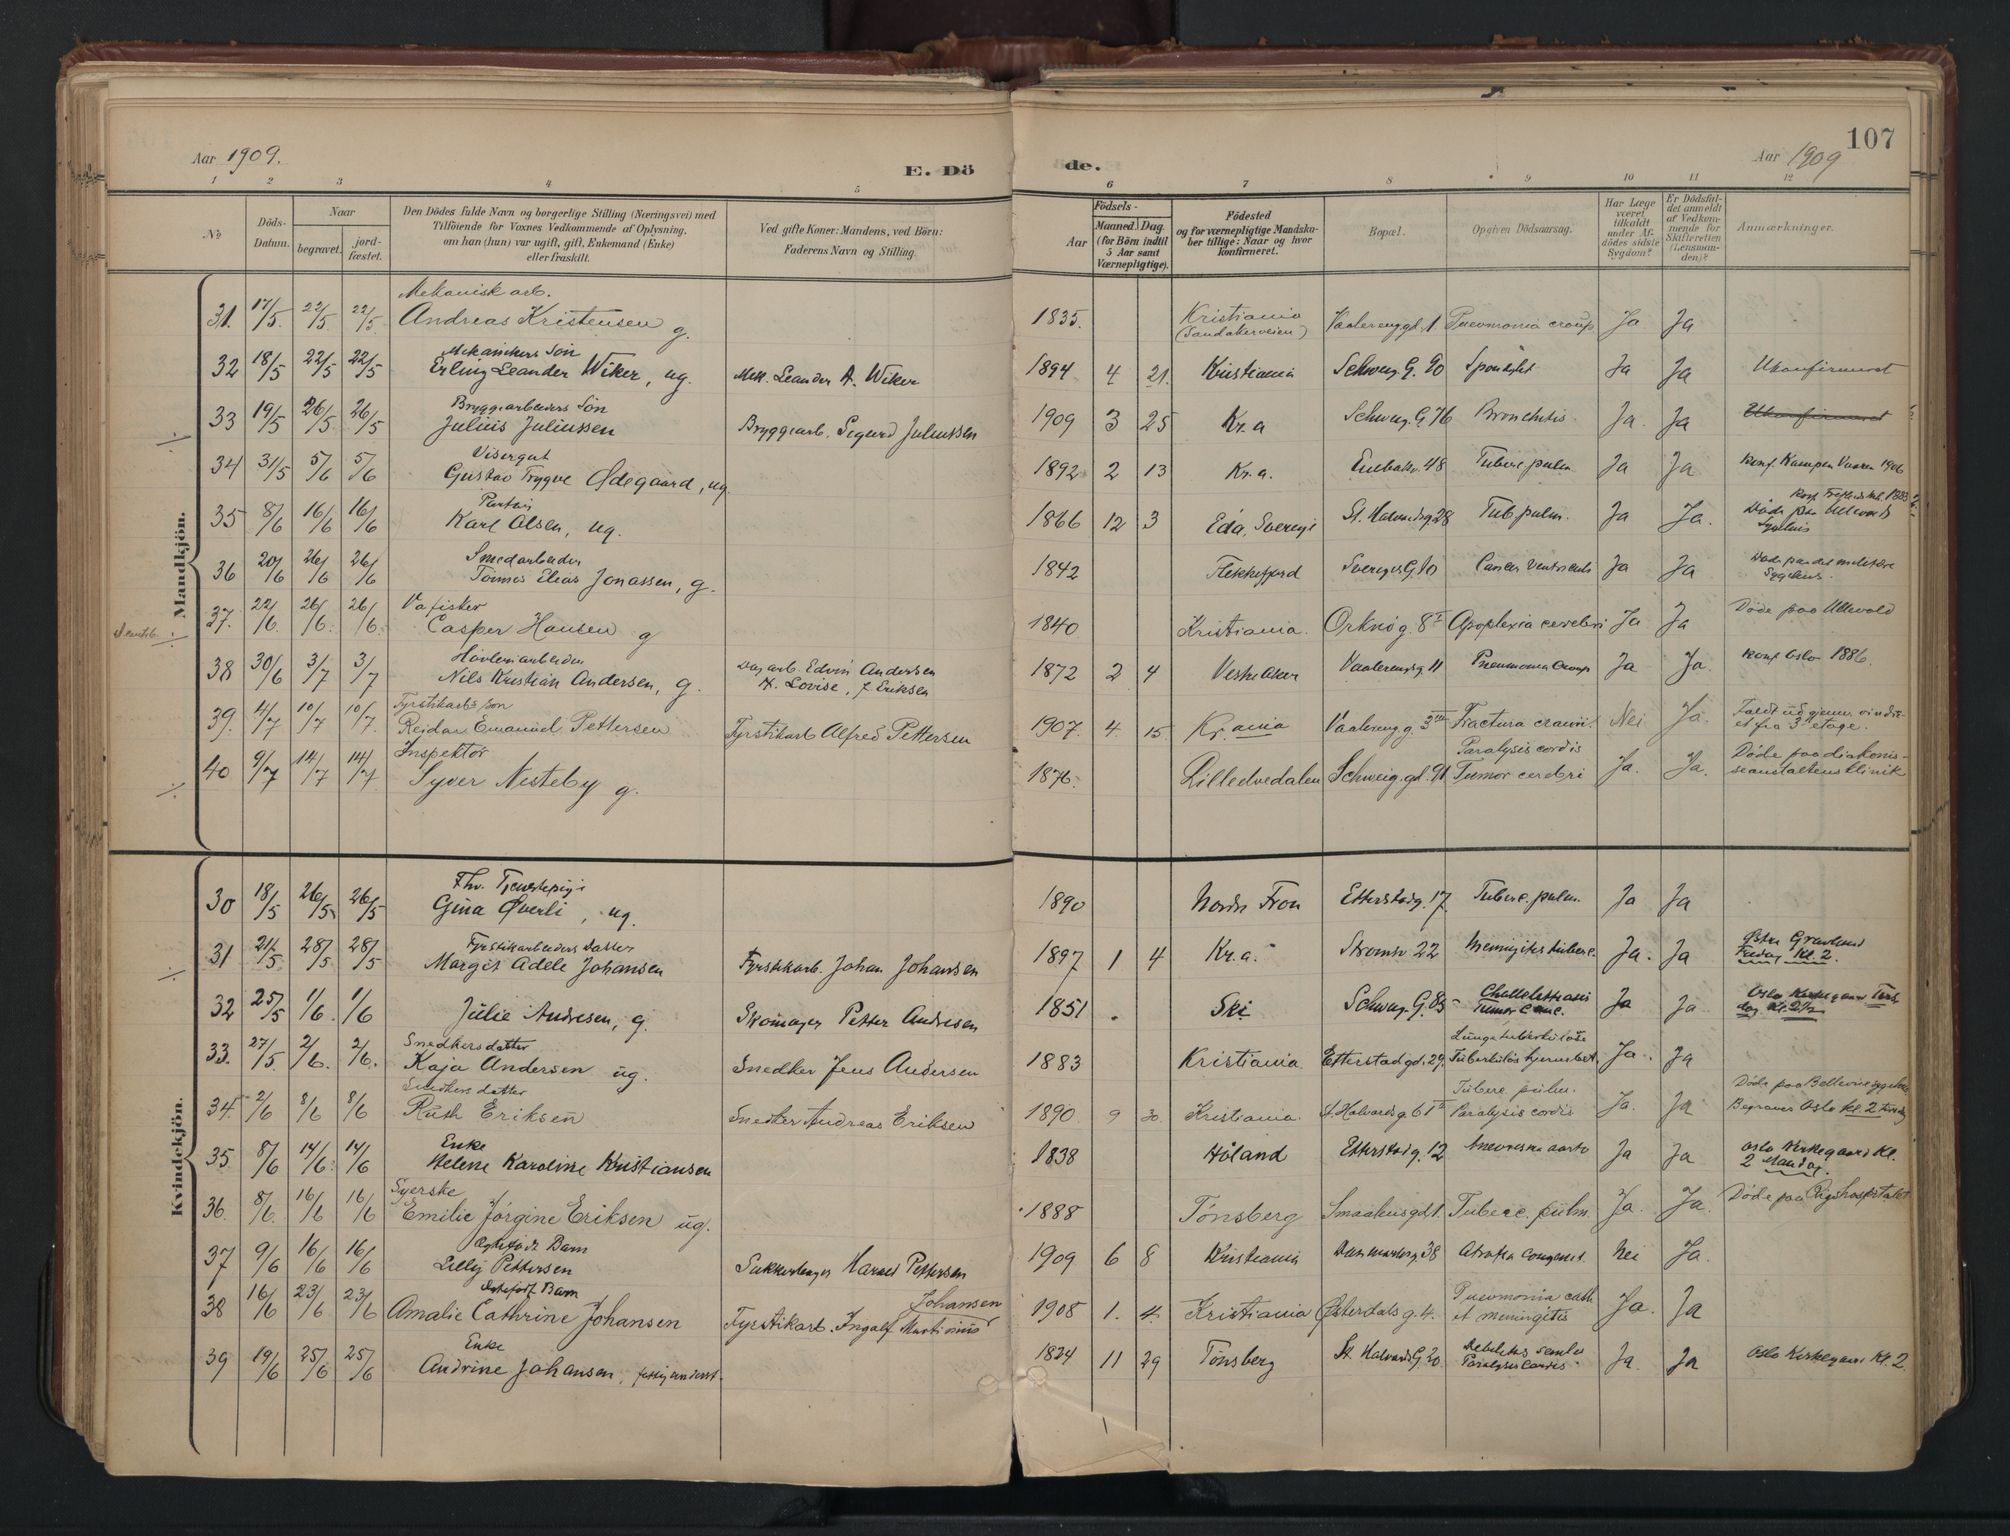 107
Aar 1909.
E. Dö
de.
Aar 1909
1 2 3 4 5 6 7 8 9 10 11 12
No.
Döds-Datum.
Naar
begravet.
jord-fæstet.
Den Dödes fulde Navn og borgerlige Stilling (Næringsvei) med
Tilföiende for Voxnes Vedkommende af Oplysning,
om han (hun) var ugift, gift, Enkemand (Enke)
eller fraskilt.
Ved gifte Koner: Mandens, ved Börn:
Faderens Navn og Stilling.
Födsels-
Aar
Maaned. Dag.
(for Börn indtil
5 Aar samt
Værnepligtige).
Födested
og for værnepligtige Mandska-
ber tillige: Naar og hvor
konfirmeret.
Bopæl.
Opgiven Dödsaarsag.
Har Læge
været
tilkaldt
under Af-
dödes sidste
Sygdom?
Er Dödsfal-
det anmeldt
af Vedkom-
mende for
Skifteretten
(Lensman-
den)?
Anmærkninger.
Mandkjön.
Mekanisk arb.
31. 17/5. 22/5 22/5 Andreas Kristensen g. 1835. Kristiania (Sandakerveien) Vaalerenggd. 1 Pneumonia croup. Ja Ja
Mekanikers Søn
32 18/5 22/5 22/5 Erling Leander Wiker, ug. Mek. Leander A. Wiker 1894 4 21. Kristiania Schweig. G. 90 Ja Ja Ukonfirmeret
Bryggearbeiders Søn
33 19/5 26/5 26/5 Julius Juliussen Bryggearb. Sigurd Juliussen 1909 3 25 Kr.a Schweig. G. 76 Bronchitis. Ja. Ja Ukonfirmeret
Visergut
34 31/5 5/6 5/6 Gustav Trygve Ødegaard, ug. 1892 2 13 Kr.a. 48 Tuberc. pulm. Ja Ja Konf. Kampen Vaaren 1906
35 8/6 16/6 16/6 Karl Olsen, ug. 1866 12 3 Eda, Sverige St. Halvardsg. 28 Tub. pulm. Ja Ja. Døde paa Ullevaals Sygehus
Smedarbeider
36 20/6 26/6 26/6 Tønnes Elias Jonassen, g. 1842 Flekkefjord Sveriges G. 10 Cancer ventriculi Ja Ja Døde paa det militære Sygehus.
37. 22/6. 26/6. 26/6. Casper Hansen g 1840 Kristiania. Orknög. 8 I Apoplexia cerebri Ja Ja Døde paa Ullevold
Høvleriarbeider
38 30/6 3/7 3/7 Nils Kristian Andersen, g. Dagarb. Edvin Andersen H. Lovise, f. Eriksen 1872 2 4 Vestre Aker Vaalerengsg. 11 Pneumonia Croup. Ja Ja. Konf Oslo 1886.
Fyrstikarb. søn
39. 4/7 10/7 10/7. Reidar Emanuel Pettersen Fyrstikarb Alfred Pettersen 1907. 4. 15. Kr.ania Vaalereng g. 3 Fractura cranii. Nei Ja. Faldt ud gjennem vindu et fra 3 etage.
Inspektør
40 9/7 14/7 14/7 Syver Nesteby g. 1876. Lilleelvedalen Schweig. gd. 91 Paralysis cordis Tumor cerebri Ja. Ja. Døde paa diakonis-seanstaltens klinik
Kvindekjön.
Fhv. Tjenestepige
30 18/5 26/5 26/5 Gina Øverli, ug. 1890 Nordre Fron Etterstadg. 17. Tuberc. pulm. Ja Ja
Fyrstikarbeiders Datter
31 21/5 28/5 28/5 Margit Adele Johansen Fyrstikarb. Johan Johansen 1897 1 4 Kr.a. Strømsv 22 Meningitis tuberc. Ja. Ja Østre Gravlund Fredag Kl. 2.
32 25/5 1/6. 1/6 Julie Andresen, g. Skomager Petter Andresen 1851 Ski Schweig. G. 85 Ja Ja Oslo Kirkegaard Tirsdag Kl. 2 1/2
Snedkers datter
33. 27/5. 2/6. 2/6. Kaja Andersen ug. Snedker Jens Andersen 1883 Kristiania Etterstad gd. 29. Lungetuberkulose Ja. Ja
Snedkers datter
34 2/6 8/6 8/6 Ruth Eriksen Snedker Andreas Eriksen 1890. 9 30. Kristiania. St. Halvards g. 6 I Tuberc. pulm. Paralysis cordis Ja. Ja Begraves Oslo Kl. 2
Enke
35 8/6 14/6. 14/6 Helene Karoline Kristiansen 1838 Høland Etterstadg. 12 Ja Ja Oslo Kirkegaard Kl. 2 Mandag.
Syerske
36. 8/6. 16/6 16/6 Emilie Jørgine Eriksen ug. 1888 Tønsberg Smaahusgd. 1. Tuberc. pulm. Ja. Ja. Døde paa Rigshospitalet
Ægtefødt Barn
37 9/6 16/6 16/6 Lilly Pettersen Harald Pettersen 1909 6 8 Kristiania Danmarksg. 38 Atrofia congenit. Nei Ja.
Ægtefødt Barn
38 16/6 23/6 23/6 Amalie Cathrine Johansen Fyrstikarb. Ingolf Martinius Johansen 1908 1. 4. Kristiania Østerdals g. 4. Pneumonia cath. et meningitis Ja. Ja
Enke
39 19/6 25/6 25/6 Andrine Johansen, 1824 11 29 Tønsberg St. Halvards G. 20 Debilitas senilis Paralysis cordis Ja. Ja Oslo Kirkegaard Kl. 2